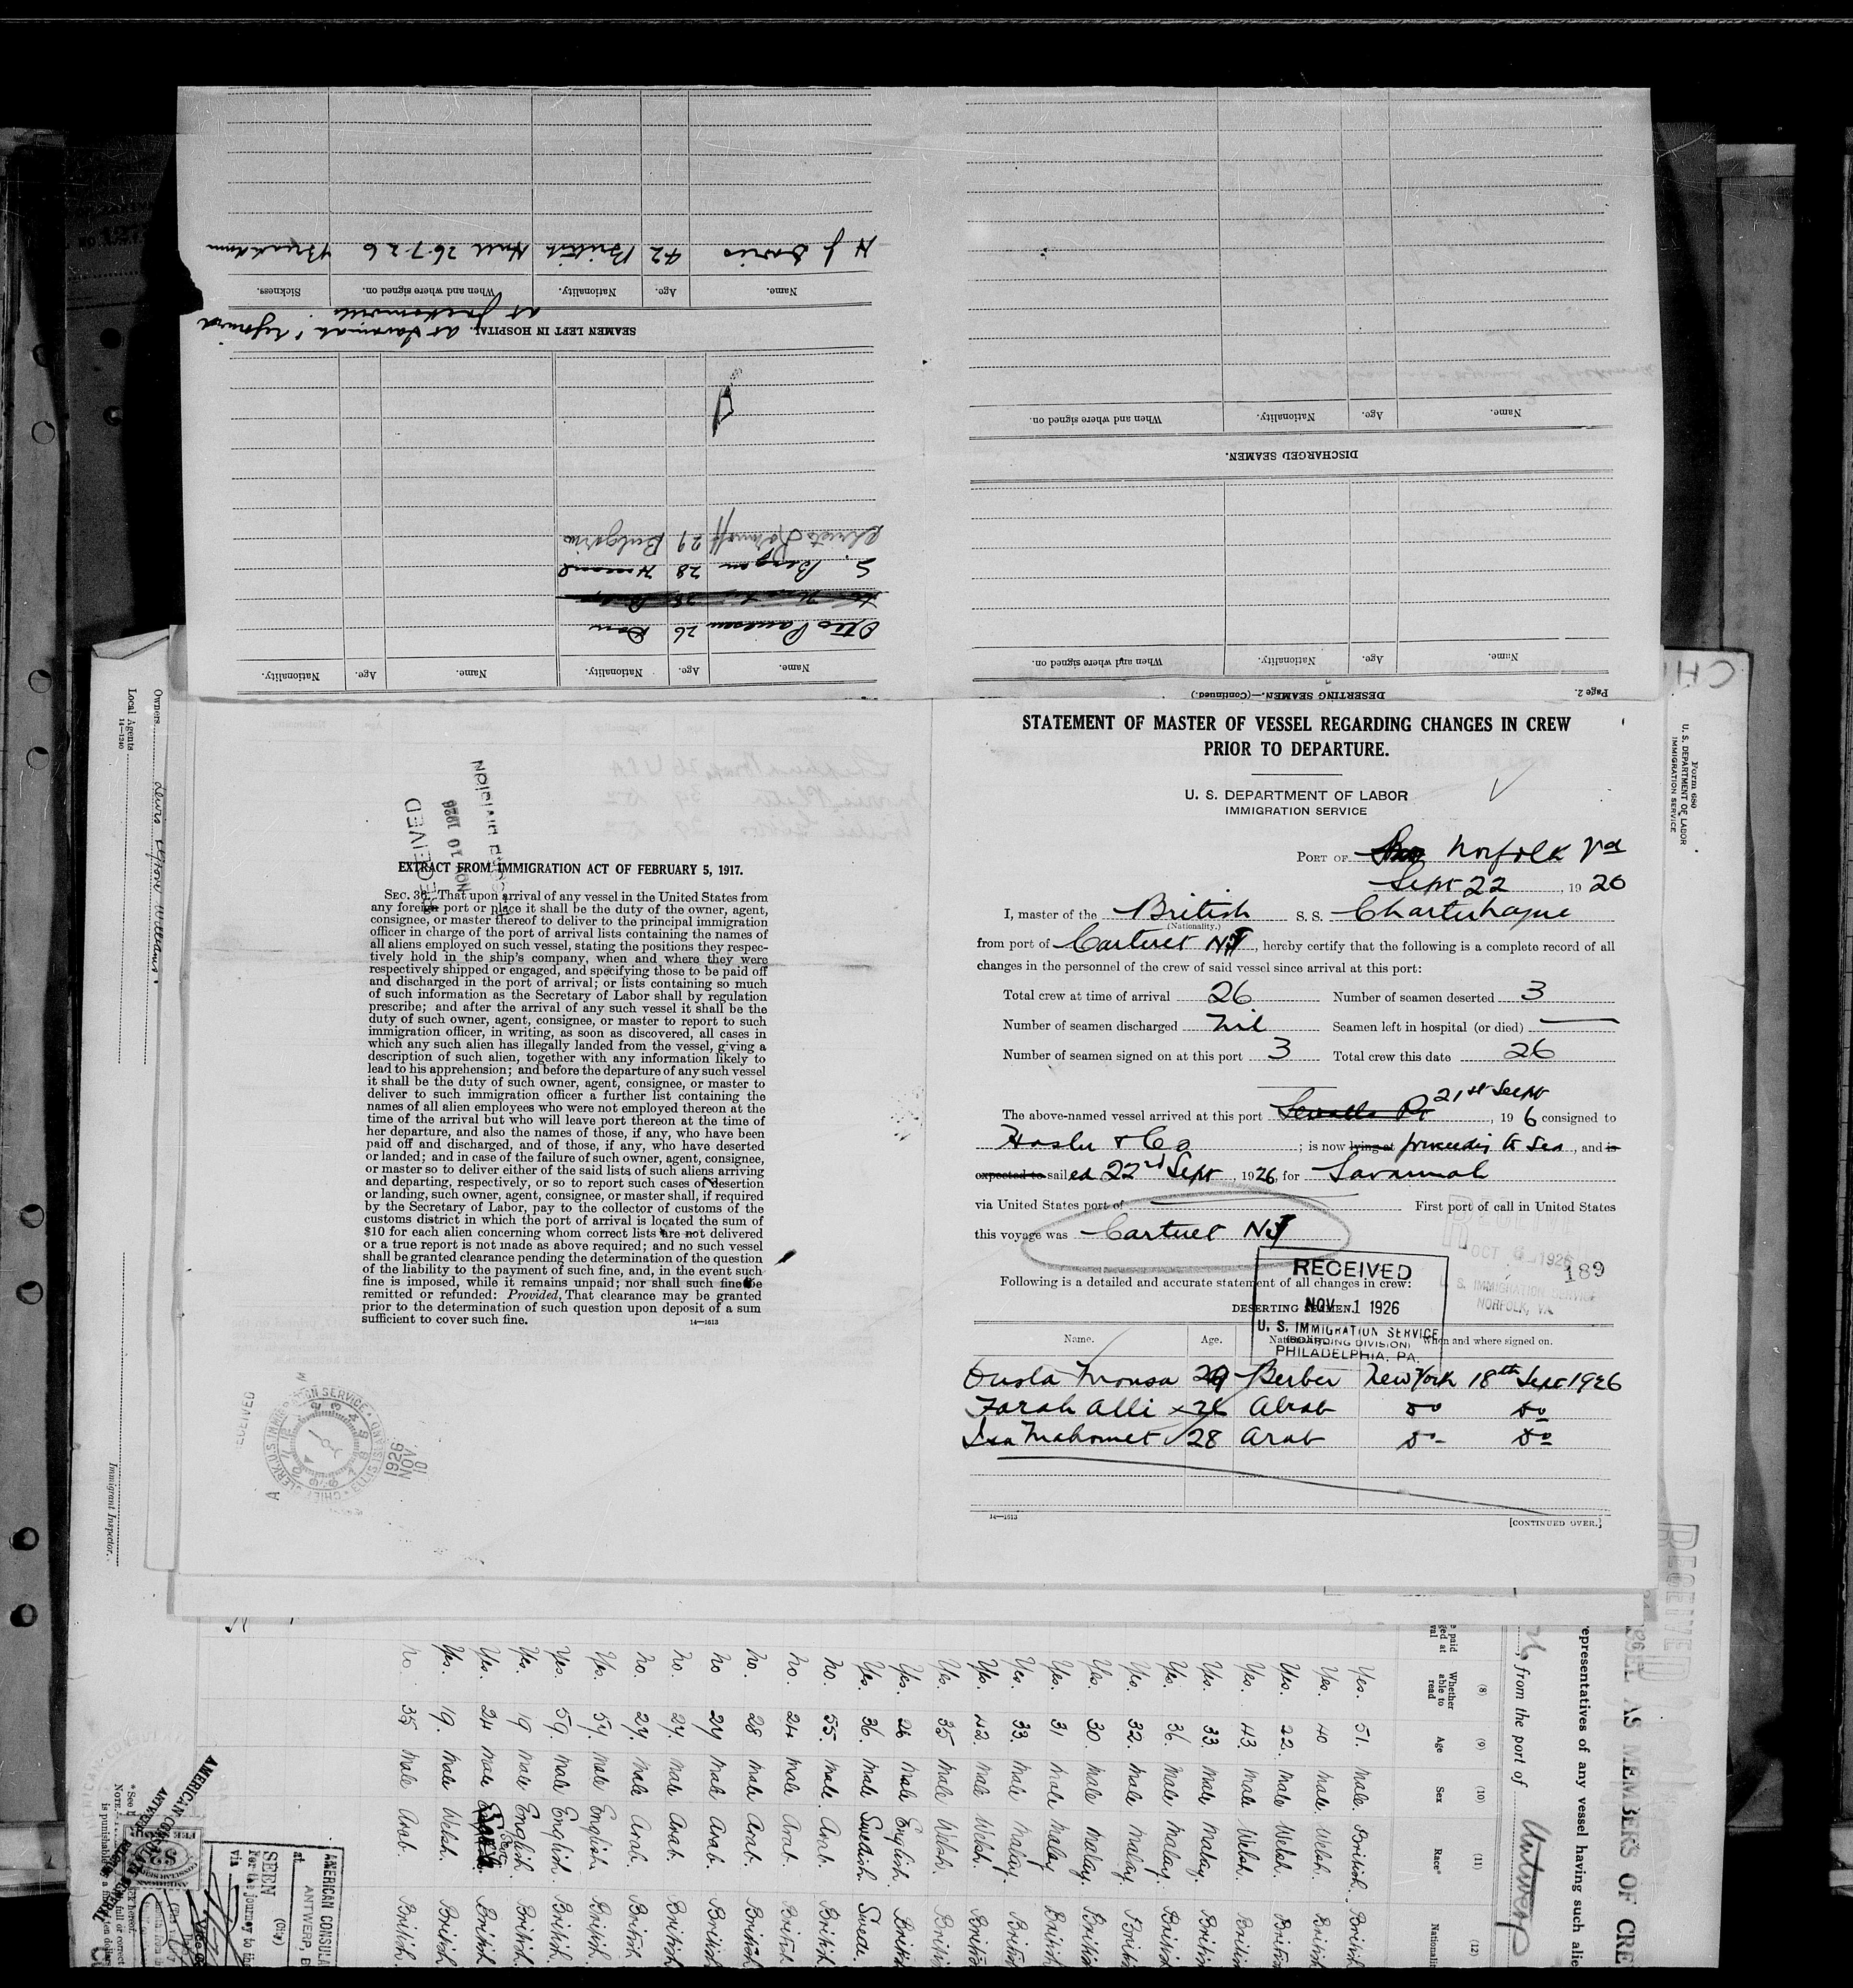 STATEMENT OF MASTER OF VESSEL REGARDING CHANGES IN CREW
PRIOR TO DEPARTURE.
U. S. DEPARTMENT OF LABOR
IMMIGRATION SERVICE
PORT OF Norfolk Va
Sept 22, 1926
I, master of the British S. S. Charterhague
(Nationality.)
from port of Carteret NJ, hereby certify that the following is a complete record of all
changes in the personnel of the crew of said vessel since arrival at this port:
Total crew at time of arrival 26 Number of seamen deserted 3
Number of seamen discharged Nil Seamen left in hospital (or died) —
Number of seamen signed on at this port 3 Total crew this date 26
21st Sept
The above-named vessel arrived at this port Sewalls Pt, 19 6 consigned to
Hasler & Co; is now lying at proceeding to Sea, and is
expected to sailed 22nd Sept, 1926, for Savannah
via United States port of First port of call in United States
this voyage was Carteret NJ
RECEIVED
OCT 6 1926
U. S. IMMIGRATION SERVICE
NORFOLK, VA.
189
Following is a detailed and accurate statement of all changes in crew:
DESERTING SEAMEN.
RECEIVED
NOV. 1 1926
U. S. IMMIGRATION SERVICE
(BOARDING DIVISION)
PHILADELPHIA, PA.
Name. Age. Nationality. When and where signed on.
Mousa 29 Berber New York 18th Sept 1926
Farah Alli 26 Arab Do Do
Isa Mahomet 28 Arab Do Do
14—1613
[CONTINUED OVER.]
RECEIVED
NOV 10 1926
EXTRACT FROM IMMIGRATION ACT OF FEBRUARY 5, 1917.
SEC. 36. That upon arrival of any vessel in the United States from
any foreign port or place it shall be the duty of the owner, agent,
consignee, or master thereof to deliver to the principal immigration
officer in charge of the port of arrival lists containing the names of
all aliens employed on such vessel, stating the positions they respec-
tively hold in the ship's company, when and where they were
respectively shipped or engaged, and specifying those to be paid off
and discharged in the port of arrival; or lists containing so much
of such information as the Secretary of Labor shall by regulation
prescribe; and after the arrival of any such vessel it shall be the
duty of such owner, agent, consignee, or master to report to such
immigration officer, in writing, as soon as discovered, all cases in
which any such alien has illegally landed from the vessel, giving a
description of such alien, together with any information likely to
lead to his apprehension; and before the departure of any such vessel
it shall be the duty of such owner, agent, consignee, or master to
deliver to such immigration officer a further list containing the
names of all alien employees who were not employed thereon at the
time of the arrival but who will leave port thereon at the time of
her departure, and also the names of those, if any, who have been
paid off and discharged, and of those, if any, who have deserted
or landed; and in case of the failure of such owner, agent, consignee,
or master so to deliver either of the said lists of such aliens arriving
and departing, respectively, or so to report such cases of desertion
or landing, such owner, agent, consignee, or master shall, if required
by the Secretary of Labor, pay to the collector of customs of the
customs district in which the port of arrival is located the sum of
$10 for each alien concerning whom correct lists are not delivered
or a true report is not made as above required; and no such vessel
shall be granted clearance pending the determination of the question
of the liability to the payment of such fine, and, in the event such
fine is imposed, while it remains unpaid; nor shall such fine be
remitted or refunded: Provided, That clearance may be granted
prior to the determination of such question upon deposit of a sum
sufficient to cover such fine.
14—1613
RECEIVED
1926
NOV
10
Page 2.
DESERTING SEAMEN.—(Continued.)
Name. Age. Nationality. When and where signed on.
DISCHARGED SEAMEN.
Name. Age. Nationality. When and where signed on.
Name. Age. Nationality. Name. Age. Nationality.
Otto 26 Dane
28
29 Bulgarian
SEAMEN LEFT IN HOSPITAL. at Savannah & rejoined
at Jacksonville
Name. Age. Nationality. When and where signed on. Sickness.
H J Davis 42 British Hull 26-7-26
Form 680
U. S. DEPARTMENT OF LABOR
IMMIGRATION SERVICE
Owners
Local Agents
14—1240
Immigrant Inspector.
RECEIVED
AS MEMBERS OF CRE
representatives of any vessel having such alie
, from the port of Antwerp
(8) (9) (10) (11) (12)
Whether able to read Age Sex Race* Nationali
Yes. 51. Male. British. British
Yes. 40 Male. Welsh. British
Yes. 22. Male Welsh. British
Yes. 43. Male Welsh. British
Yes. 33 Male Malay. British
Yes. 36. Male Malay. British
Yes. 32. Male Malay. British
Yes. 30. Male Malay. British
Yes. 31 Male Malay British
Yes. 33. Male Malay. British
Yes. 42. Male Welsh. British
Yes. 35 Male Welsh. British
Yes. 26 Male English. British
Yes. 36. Male Swedish. Swede.
No. 55. Male. Arab. British
No. 24 Male Arab. British
No. 28 Male Arab. British
No 27 Male Arab. British
No. 27. Male Arab. British
No. 27. Male Arab. British
Yes. 57. Male English. British.
Yes. 59. Male English. British.
Yes. 19 Male English. British.
Yes. 24 Male British
Yes. 19. Male Welsh. British.
No. 35 Male Arab. British.
AMERICAN CONSULA
at ANTWERP, B
SEEN
For the journey to the
via
AMERICAN CONSUL
ANTWERP